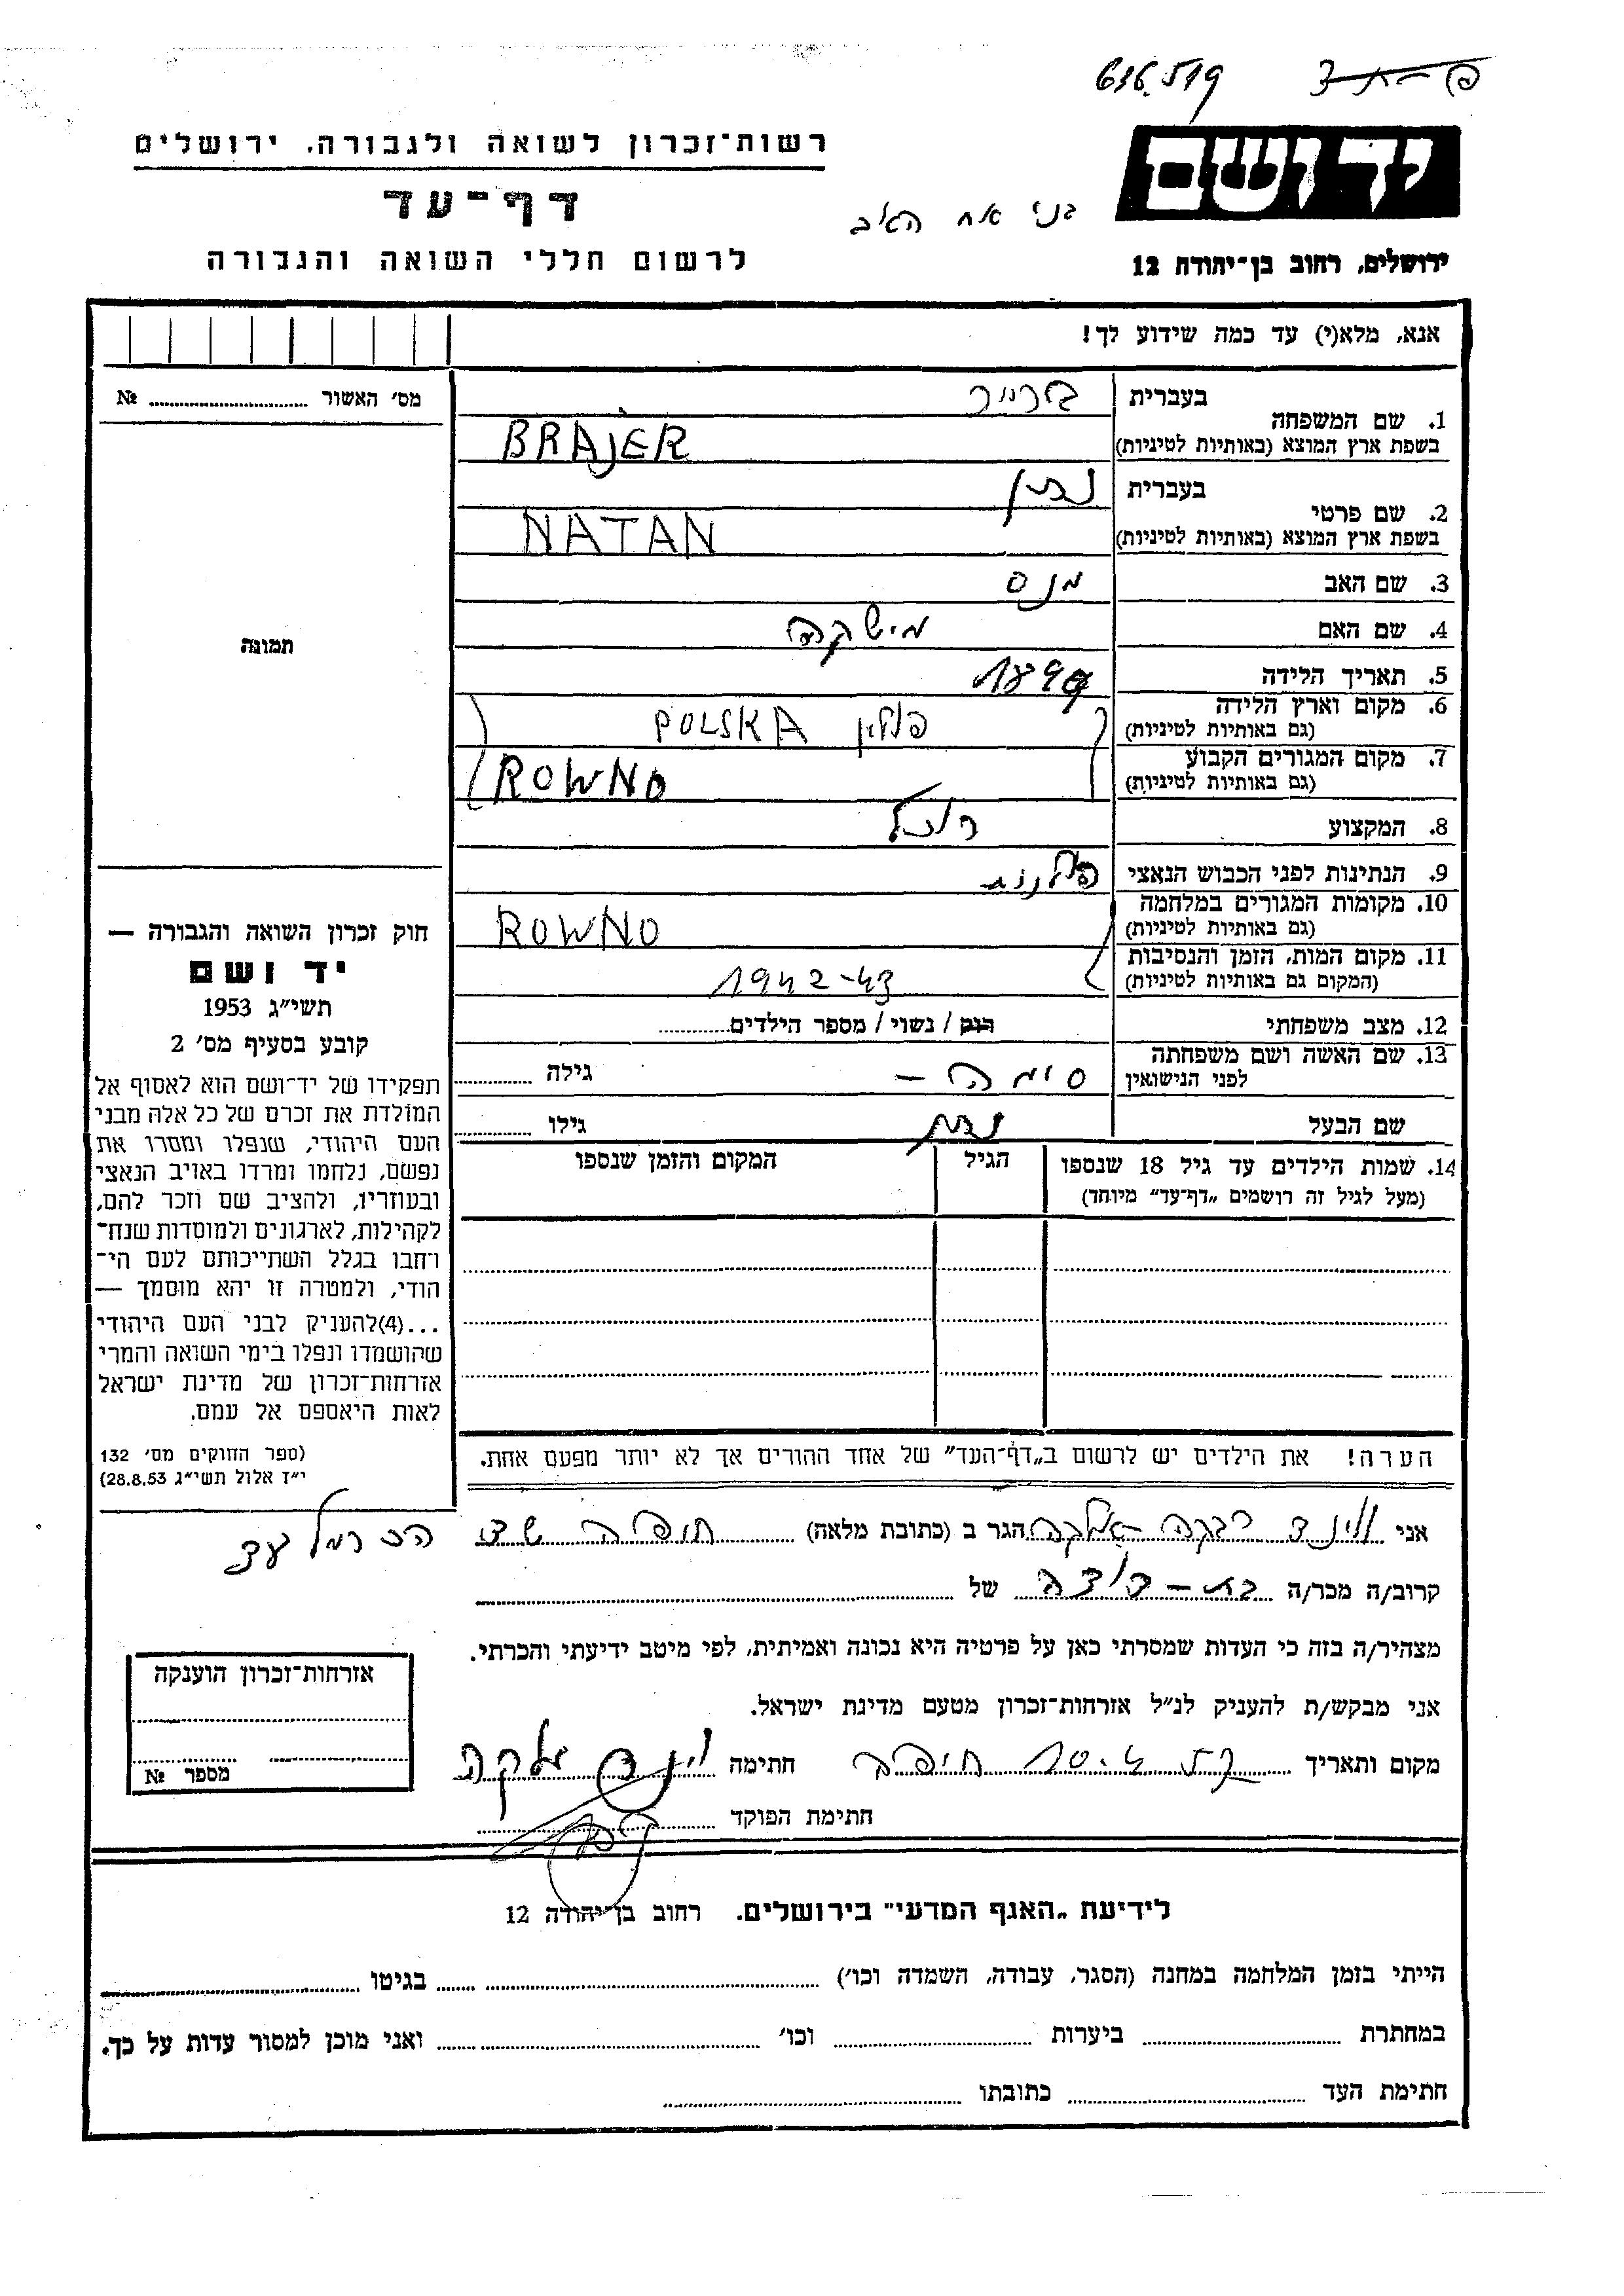 636.519
רשות־זכרון לשואה ולגבורה. ירושלים
יד ושם
דף־עד
בני אח האב
לרשום חללי השואה והגבורה
ירושלים, רחוב בן־יהודה 12
אנא, מלא(י) עד כמה שידוע לך!
מס׳ האשור № ........
תמונה
בעברית
1. שם המשפחה
בשפת ארץ המוצא (באותיות לטיניות) BRAJER
בעברית נתן
2. שם פרטי
בשפת ארץ המוצא (באותיות לטיניות) NATAN
3. שם האב מנס
4. שם האם
5. תאריך הלידה
6. מקום וארץ הלידה פולין POLSKA
(גם באותיות לטיניות)
7. מקום המגורים הקבוע ROWNO
(גם באותיות לטיניות)
8. המקצוע רוכל
9. הנתינות לפני הכבוש הנאצי פולנית
10. מקומות המגורים במלחמה ROWNO
(גם באותיות לטיניות)
11. מקום המות, הזמן והנסיבות 1942-43
(המקום גם באותיות לטיניות)
12. מצב משפחתי רווק / נשוי / מספר הילדים........
13. שם האשה ושם משפחתה סימה – גילה ........
לפני הנישואין
שם הבעל נתן גילו ........
14. שמות הילדים עד גיל 18 שנספו הגיל המקום והזמן שנספו
(מעל לגיל זה רושמים „דף־עד״ מיוחד)
הערה! את הילדים יש לרשום ב„דף־העד״ של אחד ההורים אך לא יותר מפעם אחת.
חוק זכרון השואה והגבורה —
יד ושם
תשי״ג 1953
קובע בסעיף מס׳ 2
תפקידו של יד־ושם הוא לאסוף אל
המולדת את זכרם של כל אלה מבני
העם היהודי, שנפלו ומסרו את
נפשם, נלחמו ומרדו באויב הנאצי
ובעוזריו, ולהציב שם וזכר להם,
לקהילות, לארגונים ולמוסדות שנח־
רחבו בגלל השתייכותם לעם הי־
הודי, ולמטרה זו יהא מוסמך —
...(4)להעניק לבני העם היהודי
שהושמדו ונפלו בימי השואה והמרי
אזרחות־זכרון של מדינת ישראל
לאות היאספם אל עמם.
(ספר החוקים מס׳ 132
י״ז אלול תשי״ג 28.8.53)
אני וינד רבקה מלכה הגר ב (כתובת מלאה) חיפה
קרוב/ה מכר/ה בת-דודה של ........
מצהיר/ה בזה כי העדות שמסרתי כאן על פרטיה היא נכונה ואמיתית, לפי מיטב ידיעתי והכרתי.
אני מבקש/ת להעניק לנ״ל אזרחות־זכרון מטעם מדינת ישראל.
מקום ותאריך חיפה חתימה וינד מלכה
חתימת הפוקד
אזרחות־זכרון הוענקה
מספר №
לידיעת „האגף המדעי״ בירושלים. רחוב בן־יהודה 12
הייתי בזמן המלחמה במחנה (הסגר, עבודה, השמדה וכו׳) ........ בגיטו ........
במחתרת ........ ביערות ........ וכו׳ ........ ואני מוכן למסור עדות על כך.
חתימת העד ........ כתובתו ........